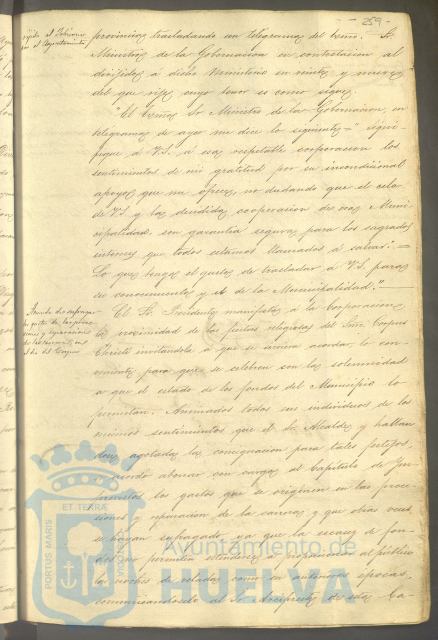 259
provincia trasladando un telegrama del Excmo. Sr.
Ministro de la Gobernacion en contestacion al
dirijido á dicho Ministerio en veinte y nueve
del que rije cuyo tenor es como sigue:
"El Excmo Sr Ministro de la Gobernacion, en
telegrama de ayer me dice lo siguiente= "Signi-
fique á V.S. á esa respetable corporacion los
sentimientos de mi gratitud por su incondicional
apoyo que me ofrece, no dudando que el celo
de V.S. y la decidida cooperacion de esa Muni-
cipalidad, son garantia segura para los sagrados
intereses que todos estamos llamados á salvar.=
Lo que tengo el gusto de trasladar á V.S. para
su conocimiento y el de la Municipalidad."
Acuerdo de sufragar
los gastos de las proce-
siones y reparacion
de la carrera en el
dia del Corpus
El Sr. Presidente manifestó á la Corporacion
la proximidad de las fiestas religiosas del Smo. Corpus
Christi invitandola á que se sirviera acordar lo con-
veniente para que se celebren con la solemnidad
a que el estado de los fondos del Municipio lo
permitan. Animados todos los individuos de los
mismos sentimientos que el Sr. Alcalde, y hallan
dose agotada la consignacion para tales festejos,
se acordó abonar con cargo al Capitulo de Im-
previstos los gastos que se originen en las proce-
siones y reparacion de la carrera y que otras veces
se hayan sufragado, ya que la escasez de fon-
dos no permiten al público
las noches de veladas como en anteriores épocas,
comunicandoselo al Sr. Arcipreste de esta Ca-
PORTUS MARIS
ET TERRÆ
CUSTODIA
Ayuntamiento de
HUELVA